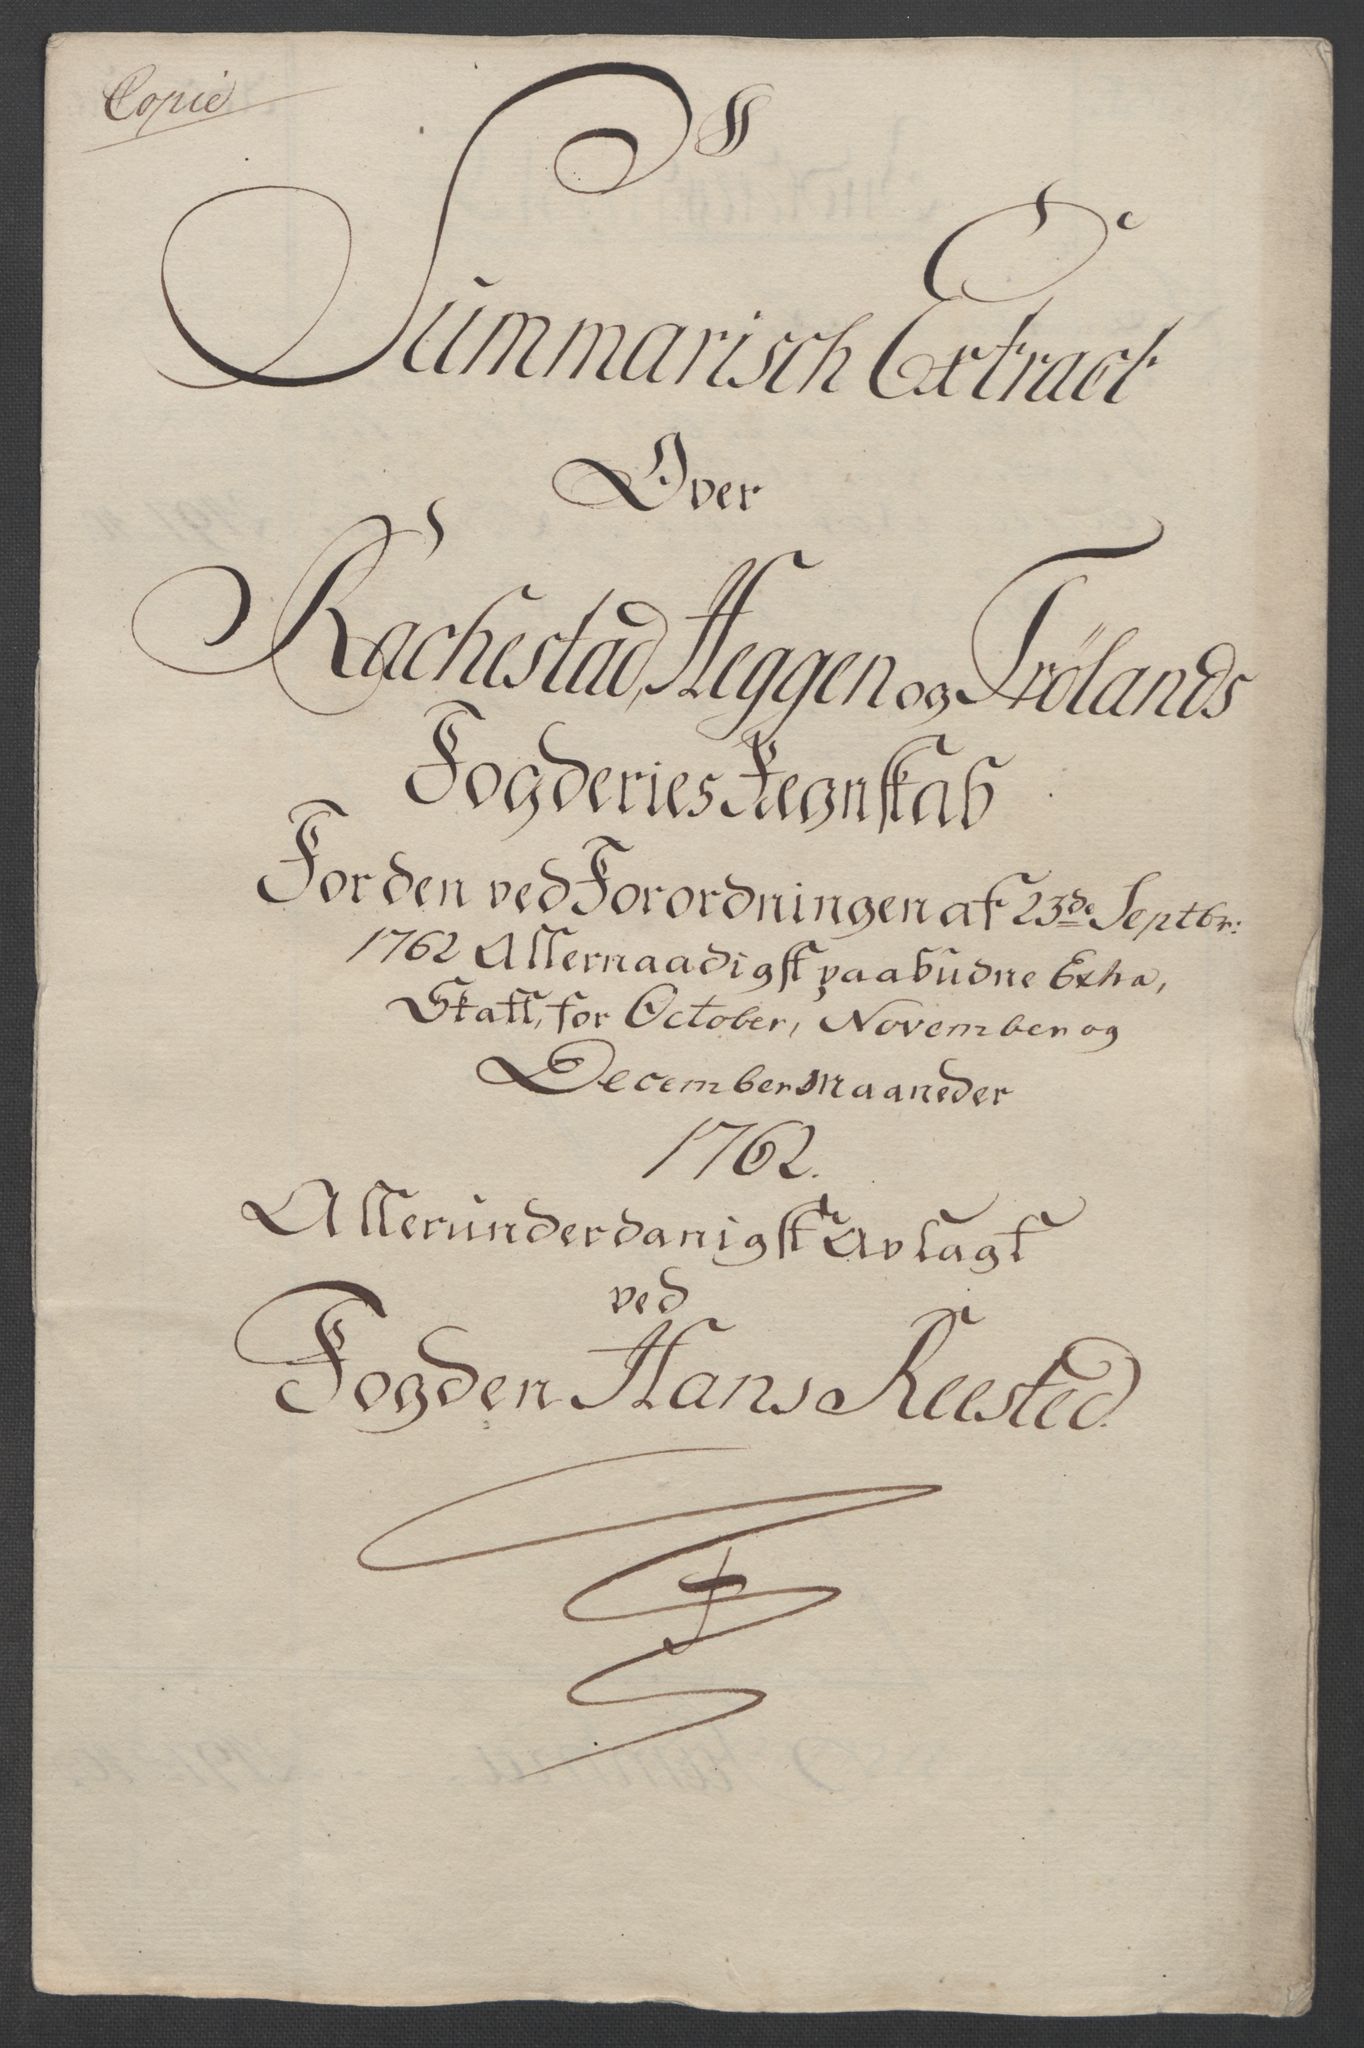 Copie
Summarisch Extract
Over
Rachestad, Heggen og Frölands
Fogderies Regnskab
For den ved Forordningen af 23de Septbr:
1762 Allernaadigst paabudne Extra,
Skatt, for October, November og
December Maaneder
1762.
Allerunderdanigst Avlagt
ved
Fogden Hans Reested.